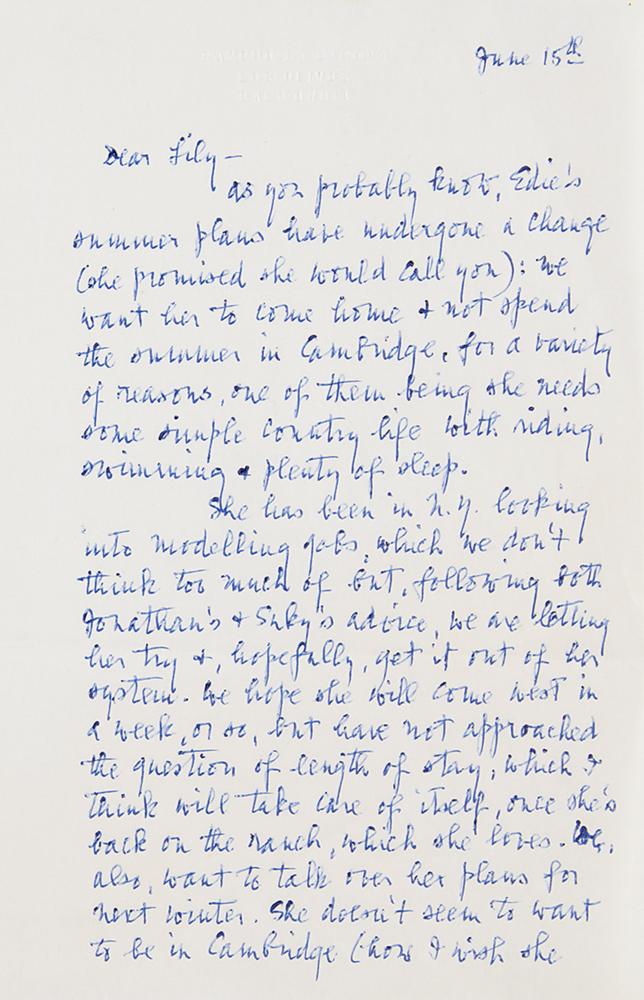 June 15th
Dear Lily—
as you probably know, Edie's
summer plans have undergone a change
(she promised she would call you): we
want her to come home + not spend
the summer in Cambridge, for a variety
of reasons, one of them being she needs
some simple country life with riding,
swimming + plenty of sleep.
She has been in N.Y. looking
into modelling jobs, which we don't
think too much of but, following both
Jonathan's + Suky's advice, we are letting
her try +, hopefully, get it out of her
system. We hope she will come west in
a week, or so, but have not approached
the question of length of stay, which I
think will take care of itself, once she's
back on the ranch, which she loves. We,
also, want to talk over her plans for
next winter. She doesn't seem to want
to be in Cambridge (how I wish she